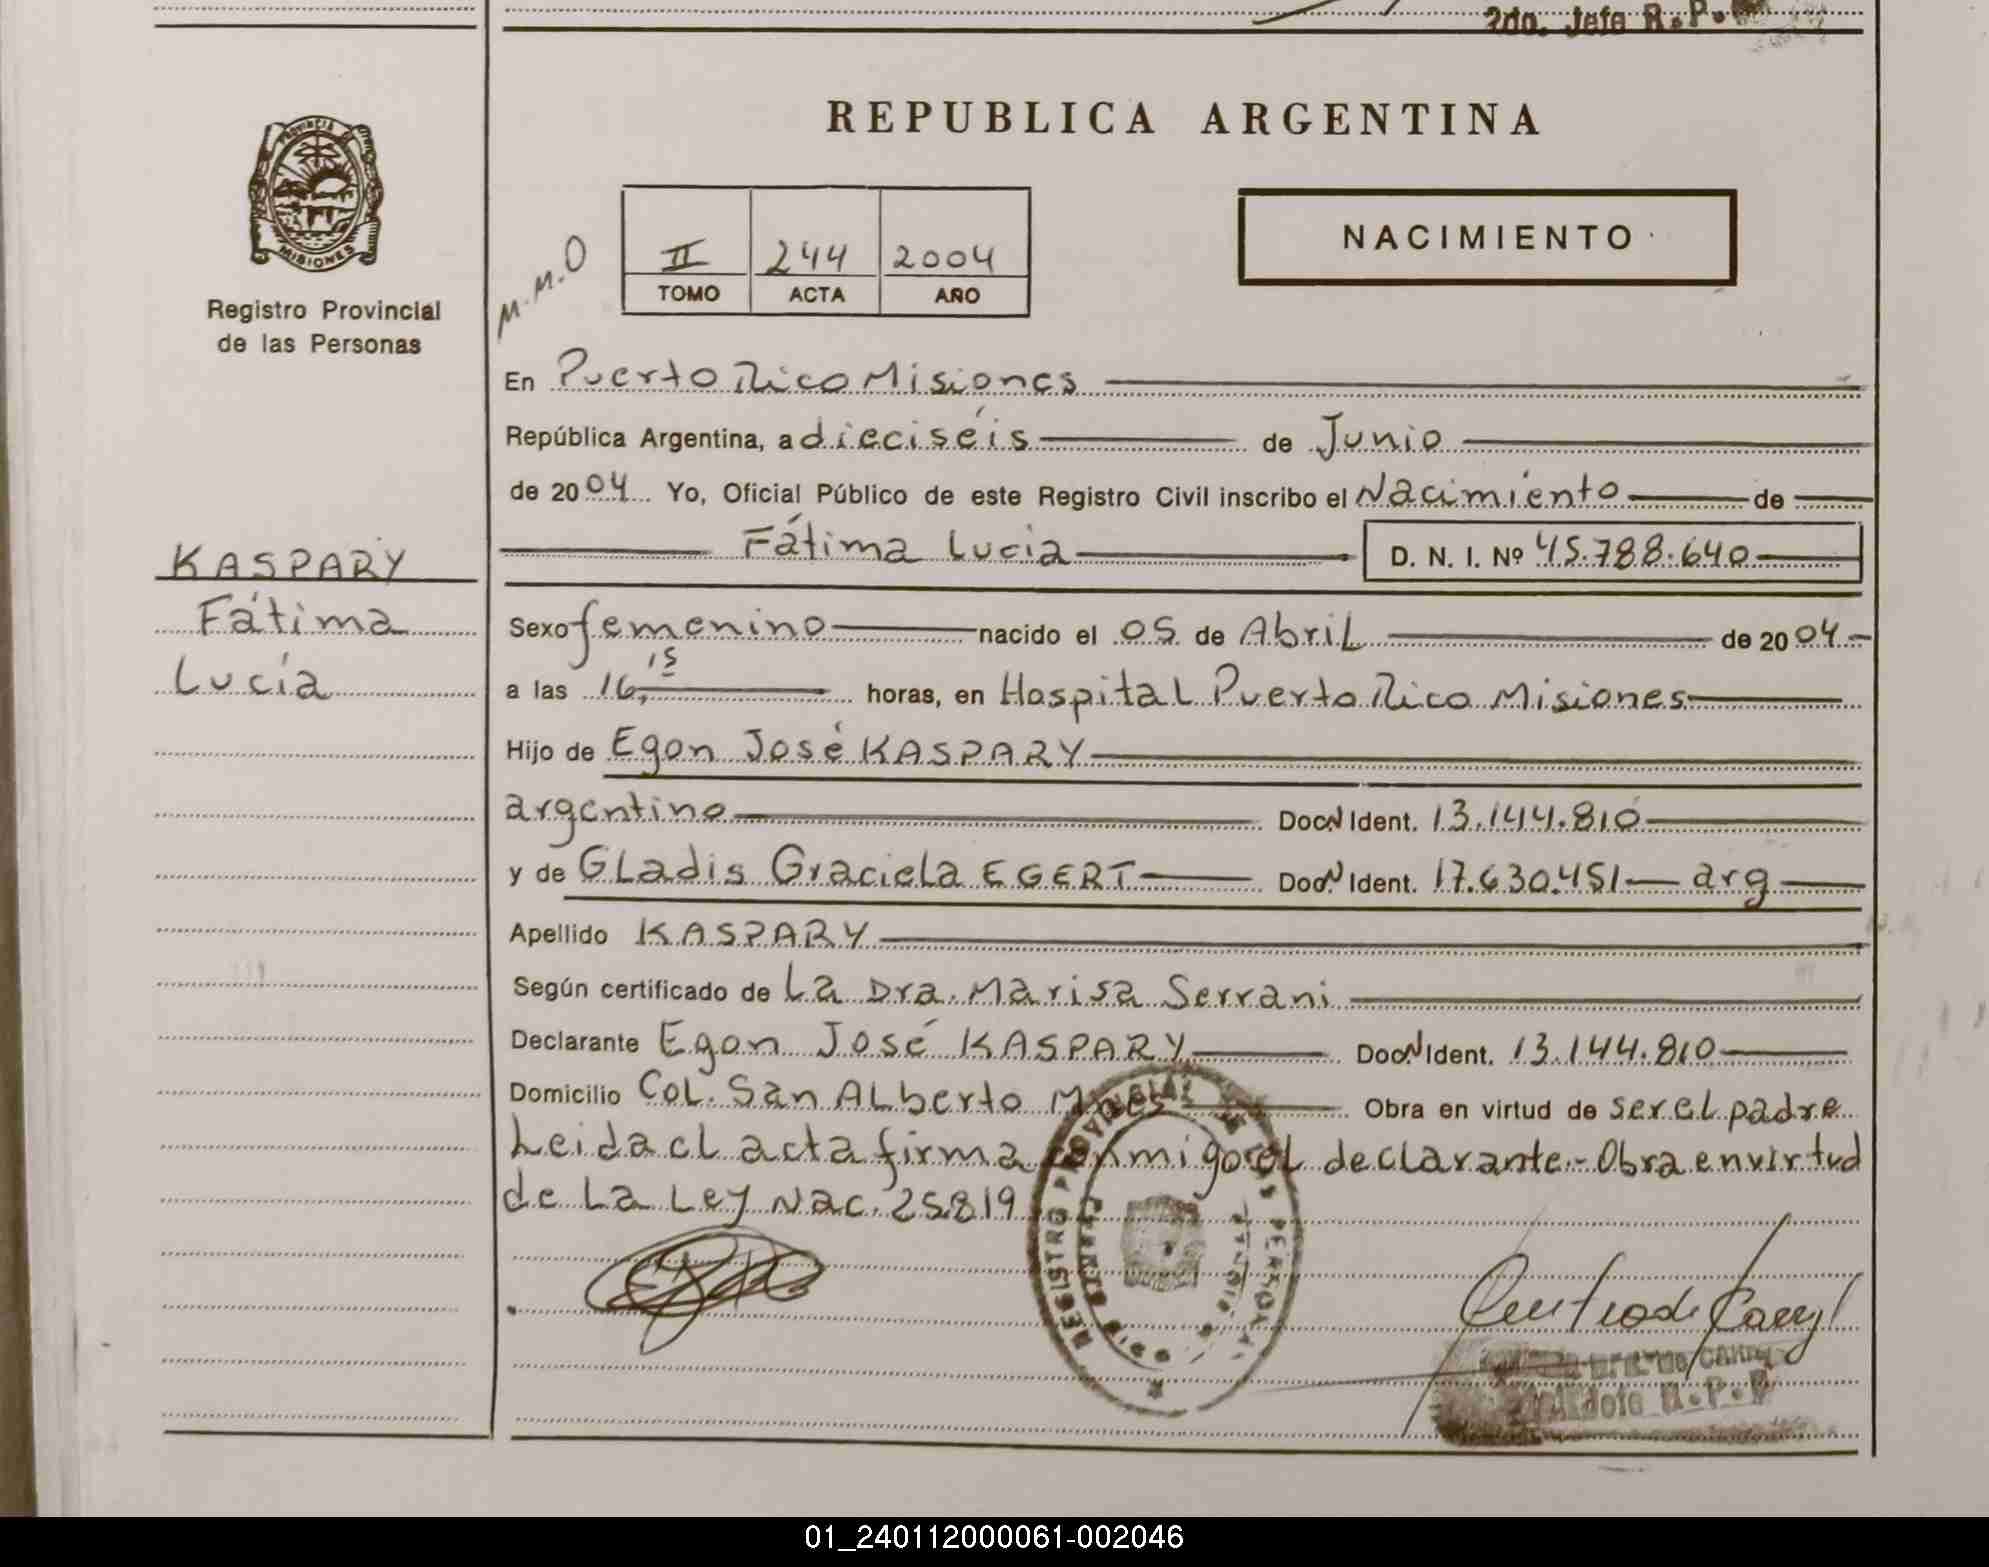 2do. Jefe R.P.
REPUBLICA ARGENTINA
PROVINCIA
MISIONES
Registro Provincial
de las Personas
M.M.O
II 244 2004
TOMO ACTA AÑO
NACIMIENTO
En Puerto Rico Misiones
República Argentina, a dieciséis de Junio
de 2004 Yo, Oficial Público de este Registro Civil inscribo el Nacimiento de
Fátima Lucia D. N. I. Nº 45.788.640
KASPARY
Fátima
Lucía
Sexo femenino nacido el 05 de Abril de 2004
a las 16,15 horas, en Hospital Puerto Rico Misiones
Hijo de Egon José KASPARY
argentino DocN Ident. 13.144.810
y de Gladis Graciela EGERT DocN Ident. 17.630.451 arg
Apellido KASPARY
Según certificado de La Dra. Marisa Serrani
Declarante Egon José KASPARY DocN Ident. 13.144.810
Domicilio Col. San Alberto Mnes Obra en virtud de ser el padre
Leida el acta firma conmigo el declarante.- Obra en virtud
de La Ley Nac. 25819
REGISTRO PROVINCIAL DE LAS PERSONAS
R.P.P
01_240112000061-002046